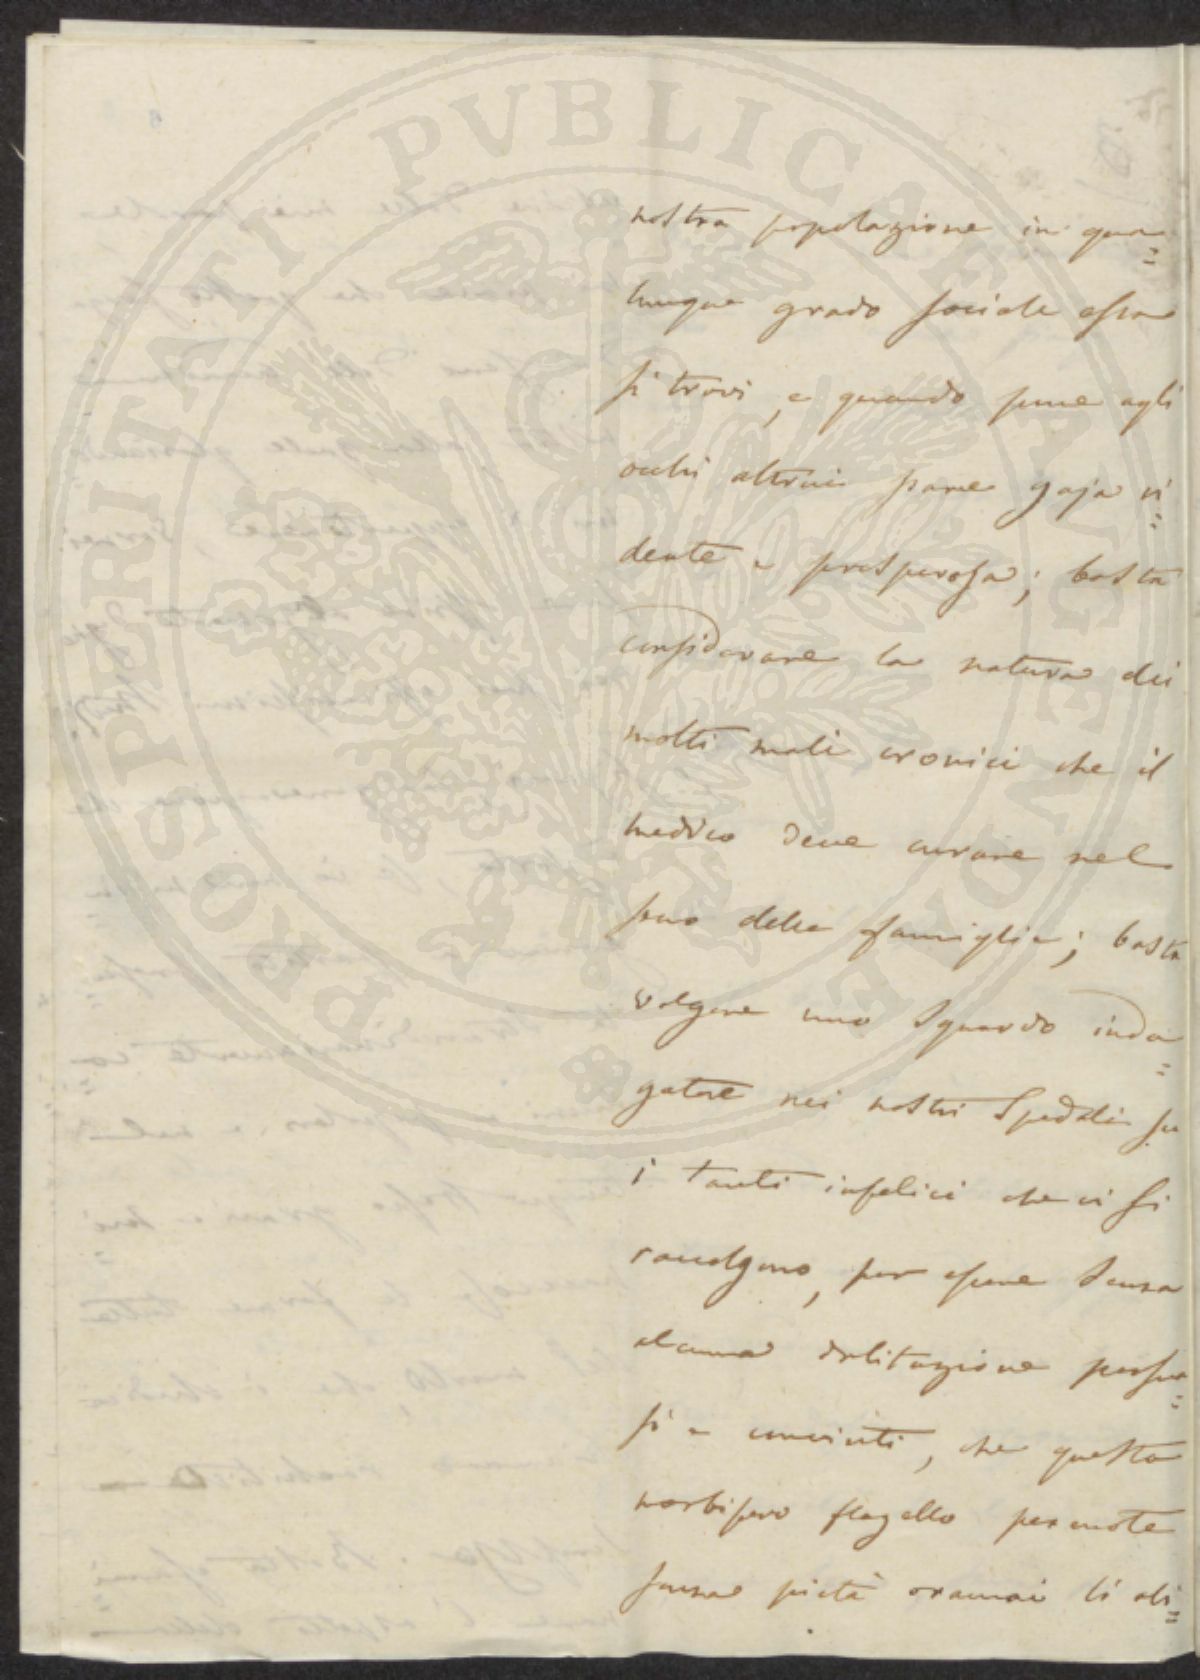 PROSPERITATI PVBLICAE AVGENDAE
nostra popolazione in qua=
lunque grado sociale essa
si trovi, e quando pure agli
occhi altrui pare gaja ri=
dente e prosperosa; basta
considerare la natura dei
molti mali cronici che il
medico deve curare nel
seno delle famiglie; basta
volgere uno sguardo inda=
gatore nei nostri Spedali su
i tanti infelici che vi si
raccolgono, per essere senza
alcuna esitazione persua=
si e convinti, che questo
morbifero flagello percuote
senza pietà oramai li abi=